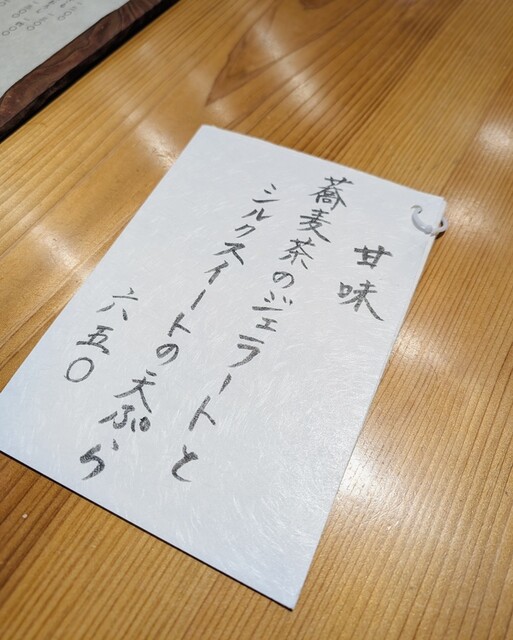 甘味
蕎麦茶のジェラートと
シルクスイートの天ぷら
六五〇